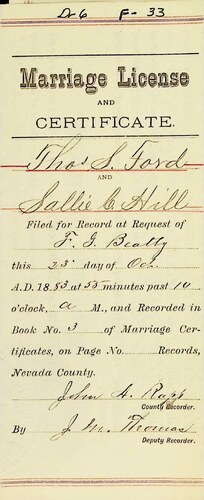 Dr 6 F- 33
Marriage License
AND
CERTIFICATE.
Thos S. Ford
AND
Sallie C Hill
Filed for Record at Request of
F. G. Beatty
this 25" day of Oct
A.D. 1883 at 55 minutes past 10
o'clock, a M., and Recorded in
Book No. 3 of Marriage Cer-
tificates, on Page No. Records,
Nevada County.
John A. Rapp
County Recorder.
By J. M. Thomas
Deputy Recorder.